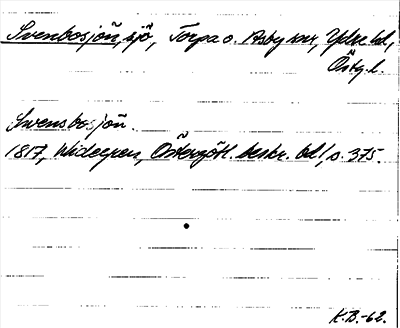 Svenbosjön, sjö, Torpa o. Asby snr, Ydre hd,
Östg. l.
Svensbosjön.
1817, Widegren, Östergötl. beskr. bd 1, s. 375.
K.B.-62.